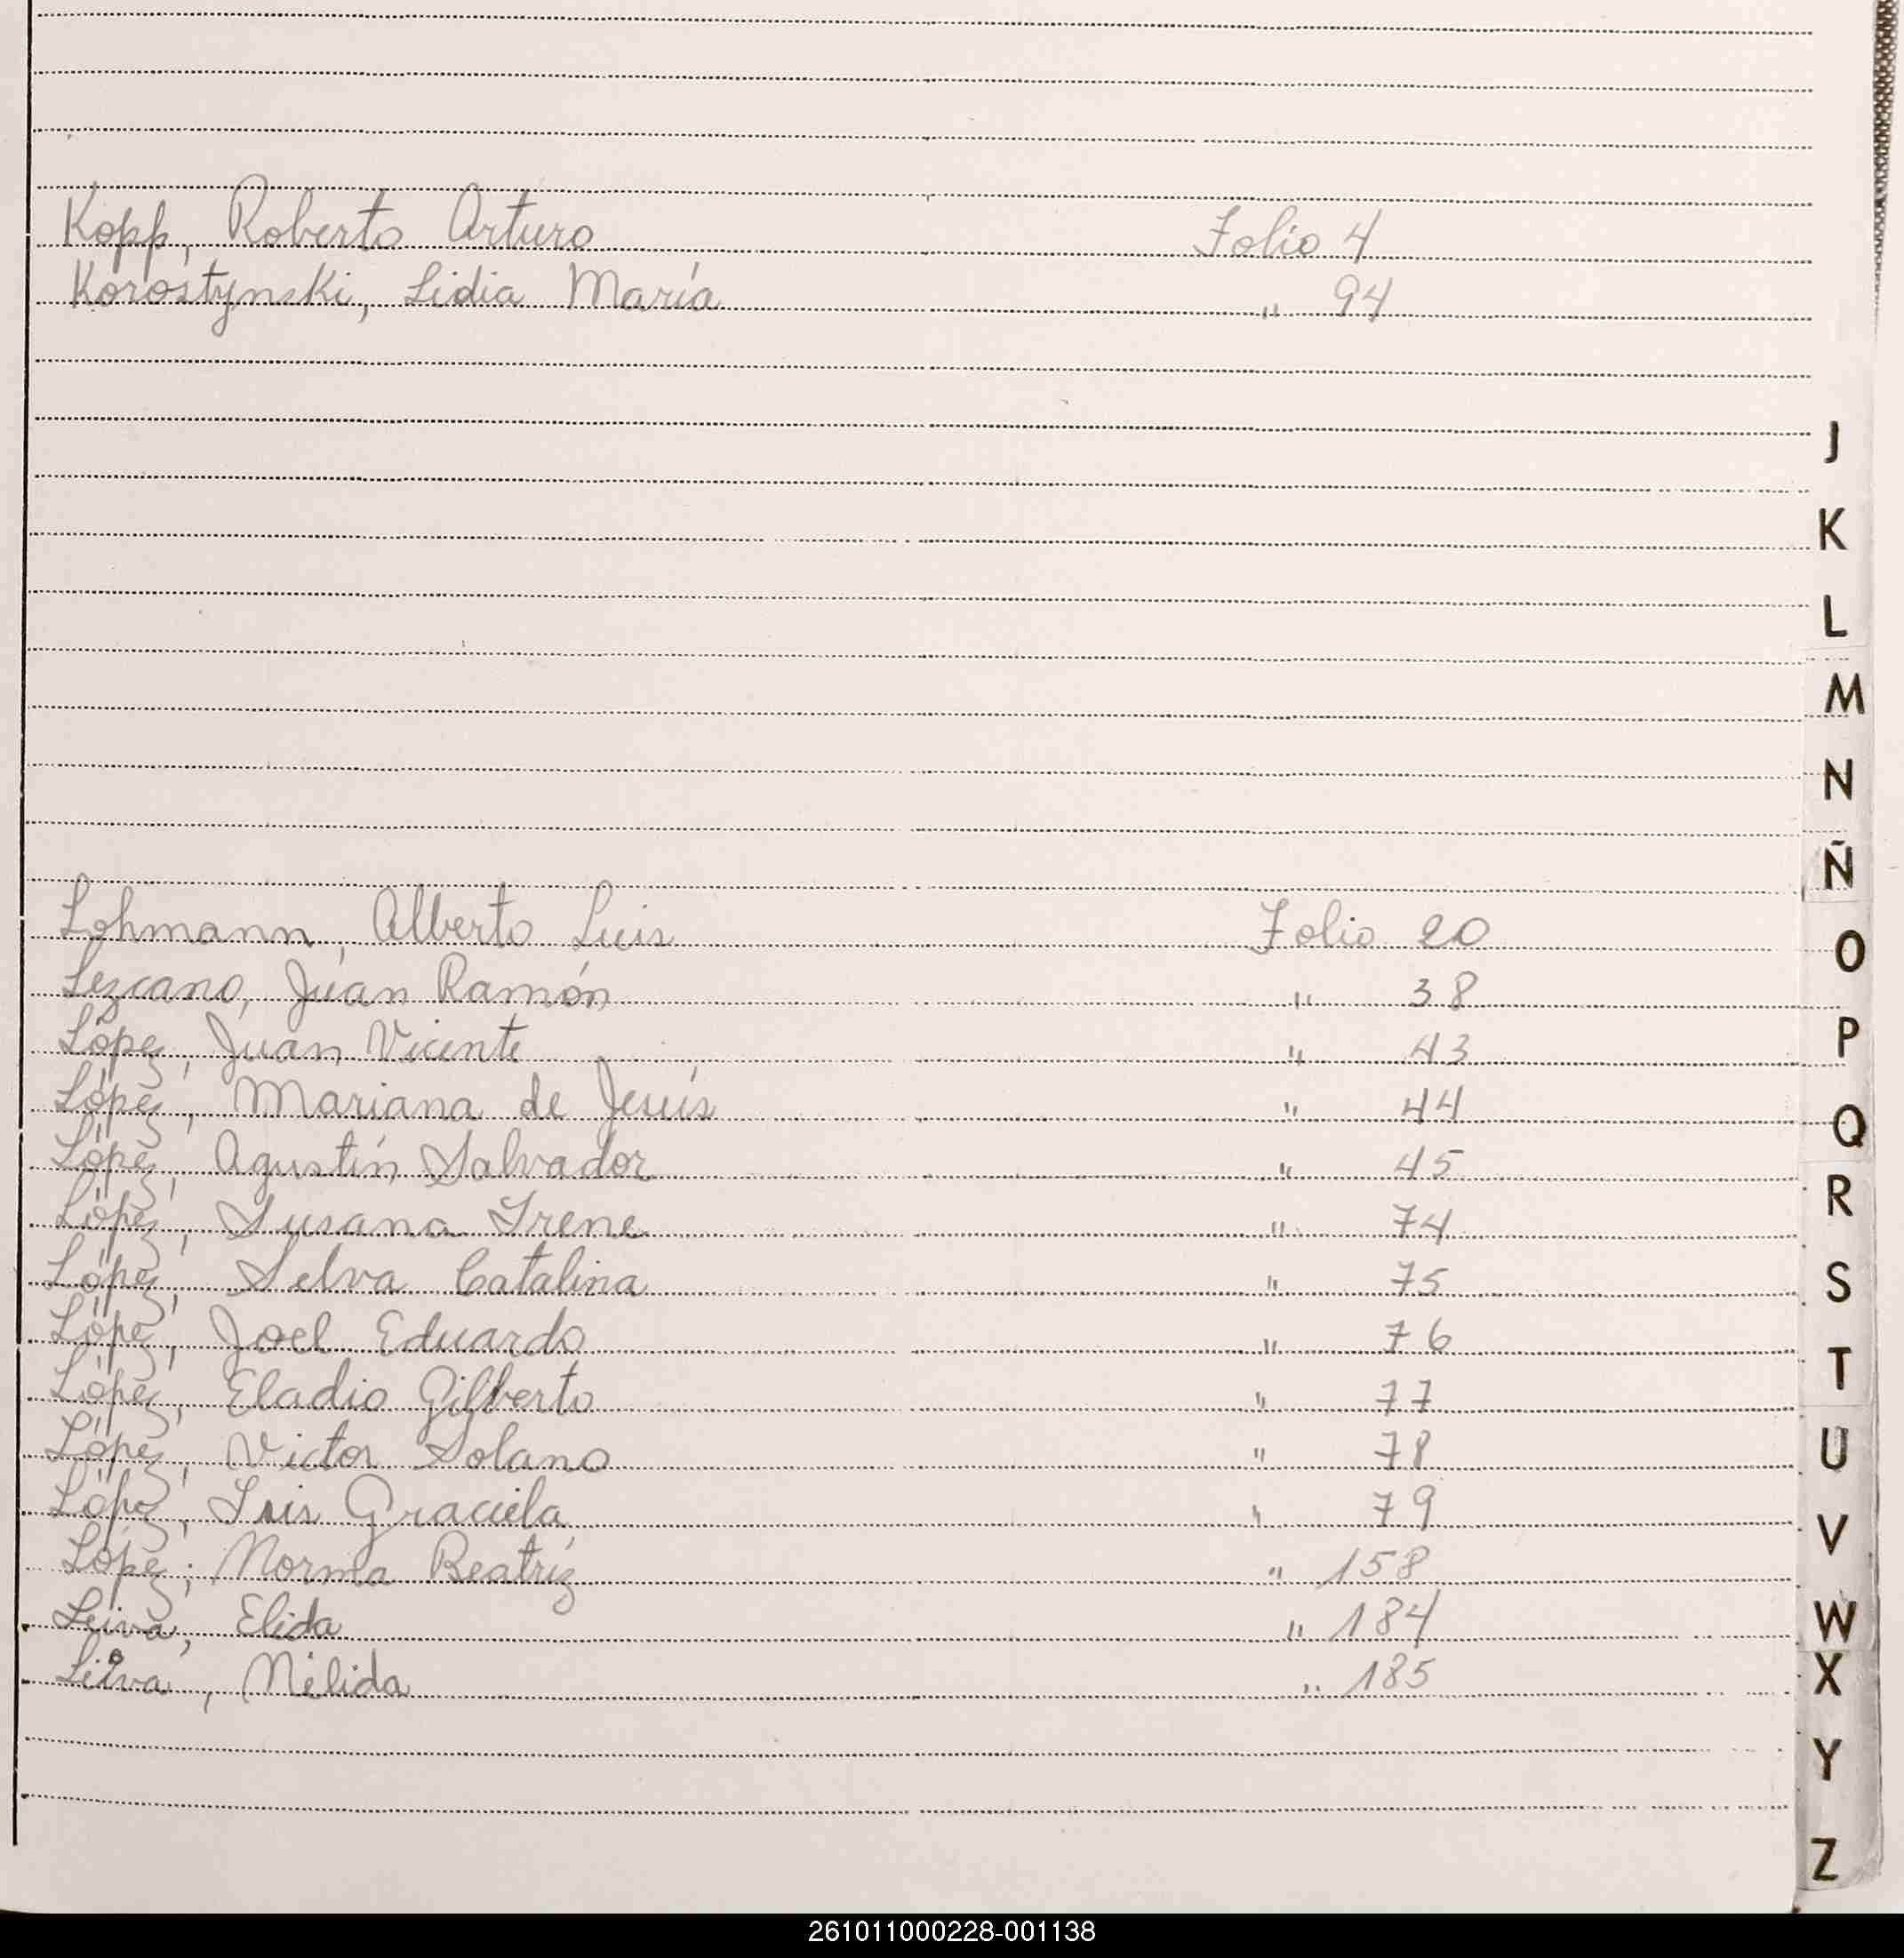 Kopp, Roberto Arturo Folio 4
Korostynski, Lidia María " 94
J
K
L
M
N
Ñ
Lohmann, Alberto Luis Folio 20
O
Lezcano, Juan Ramón " 38
López, Juan Vicente " 43
P
López, Mariana de Jesús " 44
Q
López, Agustín Salvador " 45
R
López, Susana Irene " 74
López, Selva Catalina " 75
S
López, Joel Eduardo " 76
T
López, Eladio Gilberto " 77
López, Victor Solano " 78
U
López, Iris Graciela " 79
V
López, Norma Beatríz " 158
Leiva, Elida " 184
W
Leiva, Nélida " 185
X
Y
Z
261011000228-001138